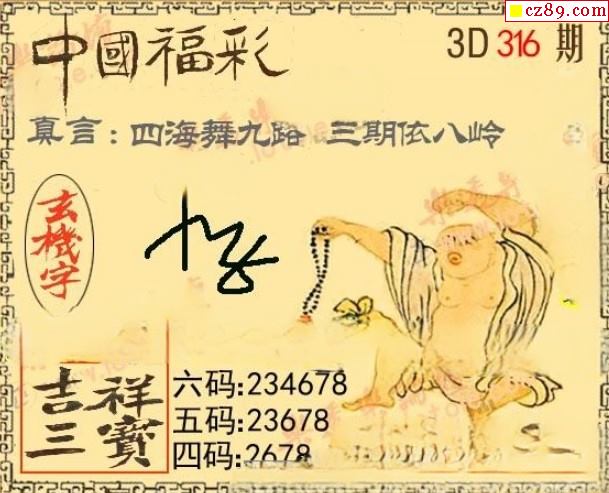 cz89.com
中國福彩
3D 316 期
真言：四海舞九路 三期依八岭
玄機字
吉祥三寶
六码:234678
五码:23678
四码:2678